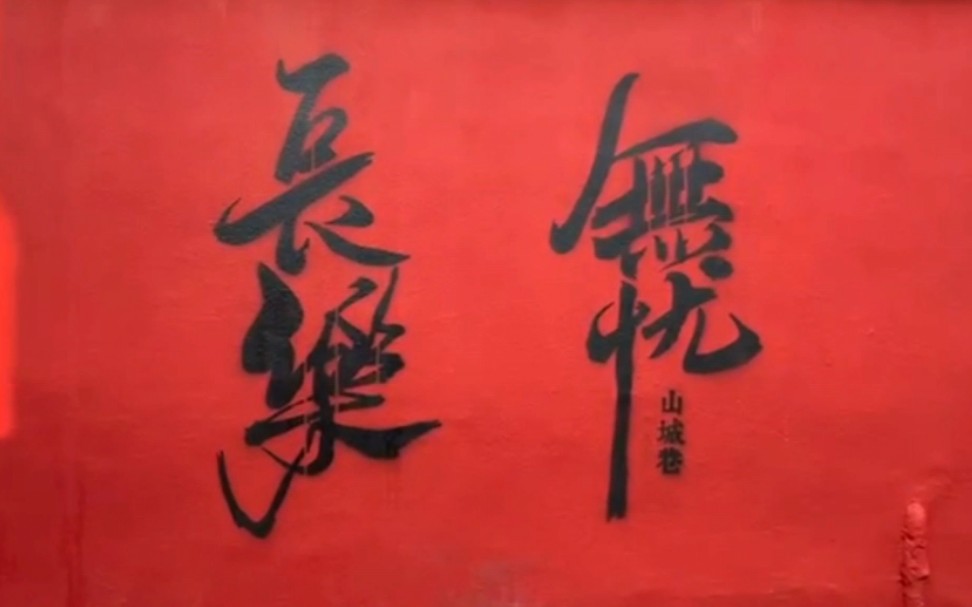 長樂
無忧
山城巷